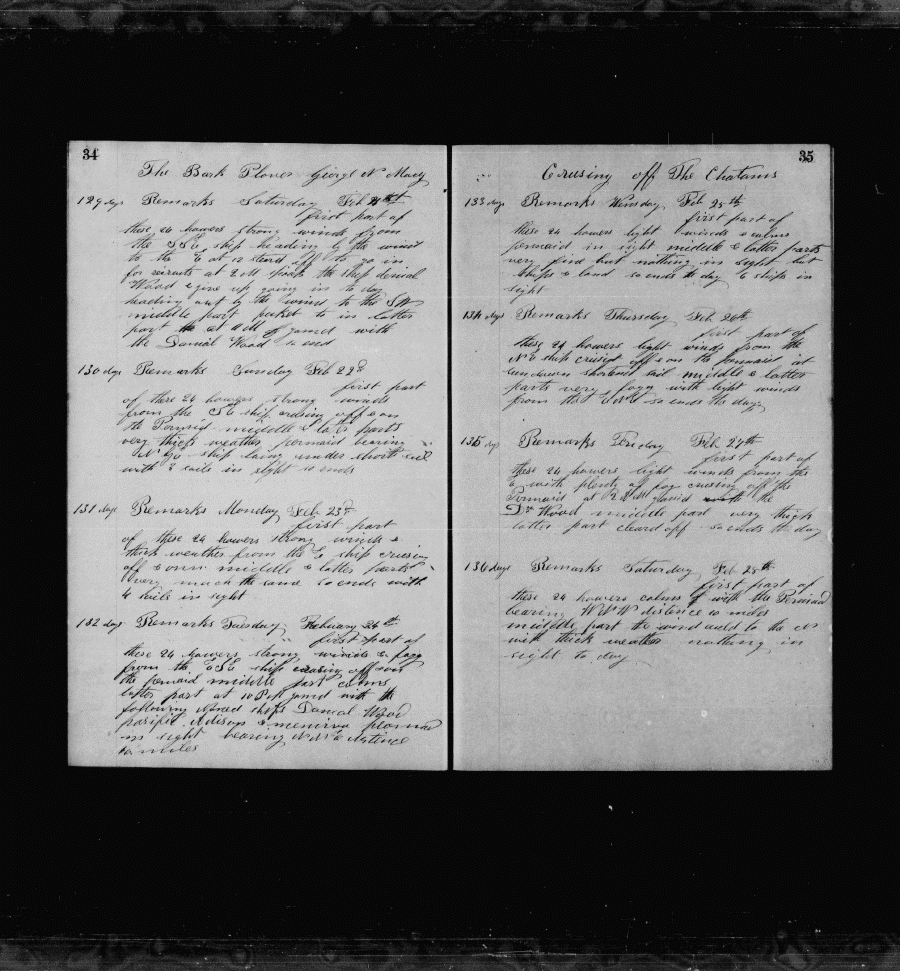 34
The Bark Plover George N Macy
129 days Remarks Saturday Feb 21st
first part of
these 24 howers strong winds from
the SSE ship heading by the wind
to the E at 12 steard off to go in
for recruts at 2 M spoak the ship Denial
Wood & give up going in to day
heading out by the wind to the SW
middle part packet to in latter
part at M gamed with
the Danial Wood so end
130 days Remarks Sunday Feb 22d
first part
of these 24 howers strong winds
from the SE ship crusing off & on
the middle & latr parts
very thick weather permaid bearing
N ship laing under short sail
with 2 sails in sight so ends
131 days Remarks Monday Feb 23d
first part
of these 24 howers strong winds &
thick weather from the E ship crusing
off & onn middle & latter parts
very much the same so ends with
4 sails in sight
132 days Remarks Tuesday February 24th
first part of
these 24 howers strong winds & fogg
from the ESE ship crusing off & on
the pemaid middle part calms
latter part at 10 P M gamed with the
following named ships Danial Wood
pasific Adison & menirva pearmad
in sight bearing NNE distence
miles
35
Crusing off The Chatams
133 days Remarks Wensday Feb 25th
first part of
these 24 howers light winds & calms
pemaid in sight middle & latter parts
very find but nothing in sight but
ships & land so ends to day 6 ships in
sight
134 days Remarks Thursday Feb 26th
first part of
these 24 howers light winds from the
NE ship crusing off & on the pemaid at
sundown shortened sail middle & latter
parts very fogg with light winds
from the so ends the day
135 dys Remarks Friday Feb 27th
first part of
these 24 howers light winds from the
E with plenty of fog crusing off the
Pemaid at 2 P M gamid with the
Dn Wood middle part very thick
latter part cleard off so ends to day
136 days Remarks Saturday Feb 28th
first part of
these 24 howers calms with the Permiad
bearing WNW distence 10 miles
middle part the wind auld to the N
with thick weather nothing in
sight to day